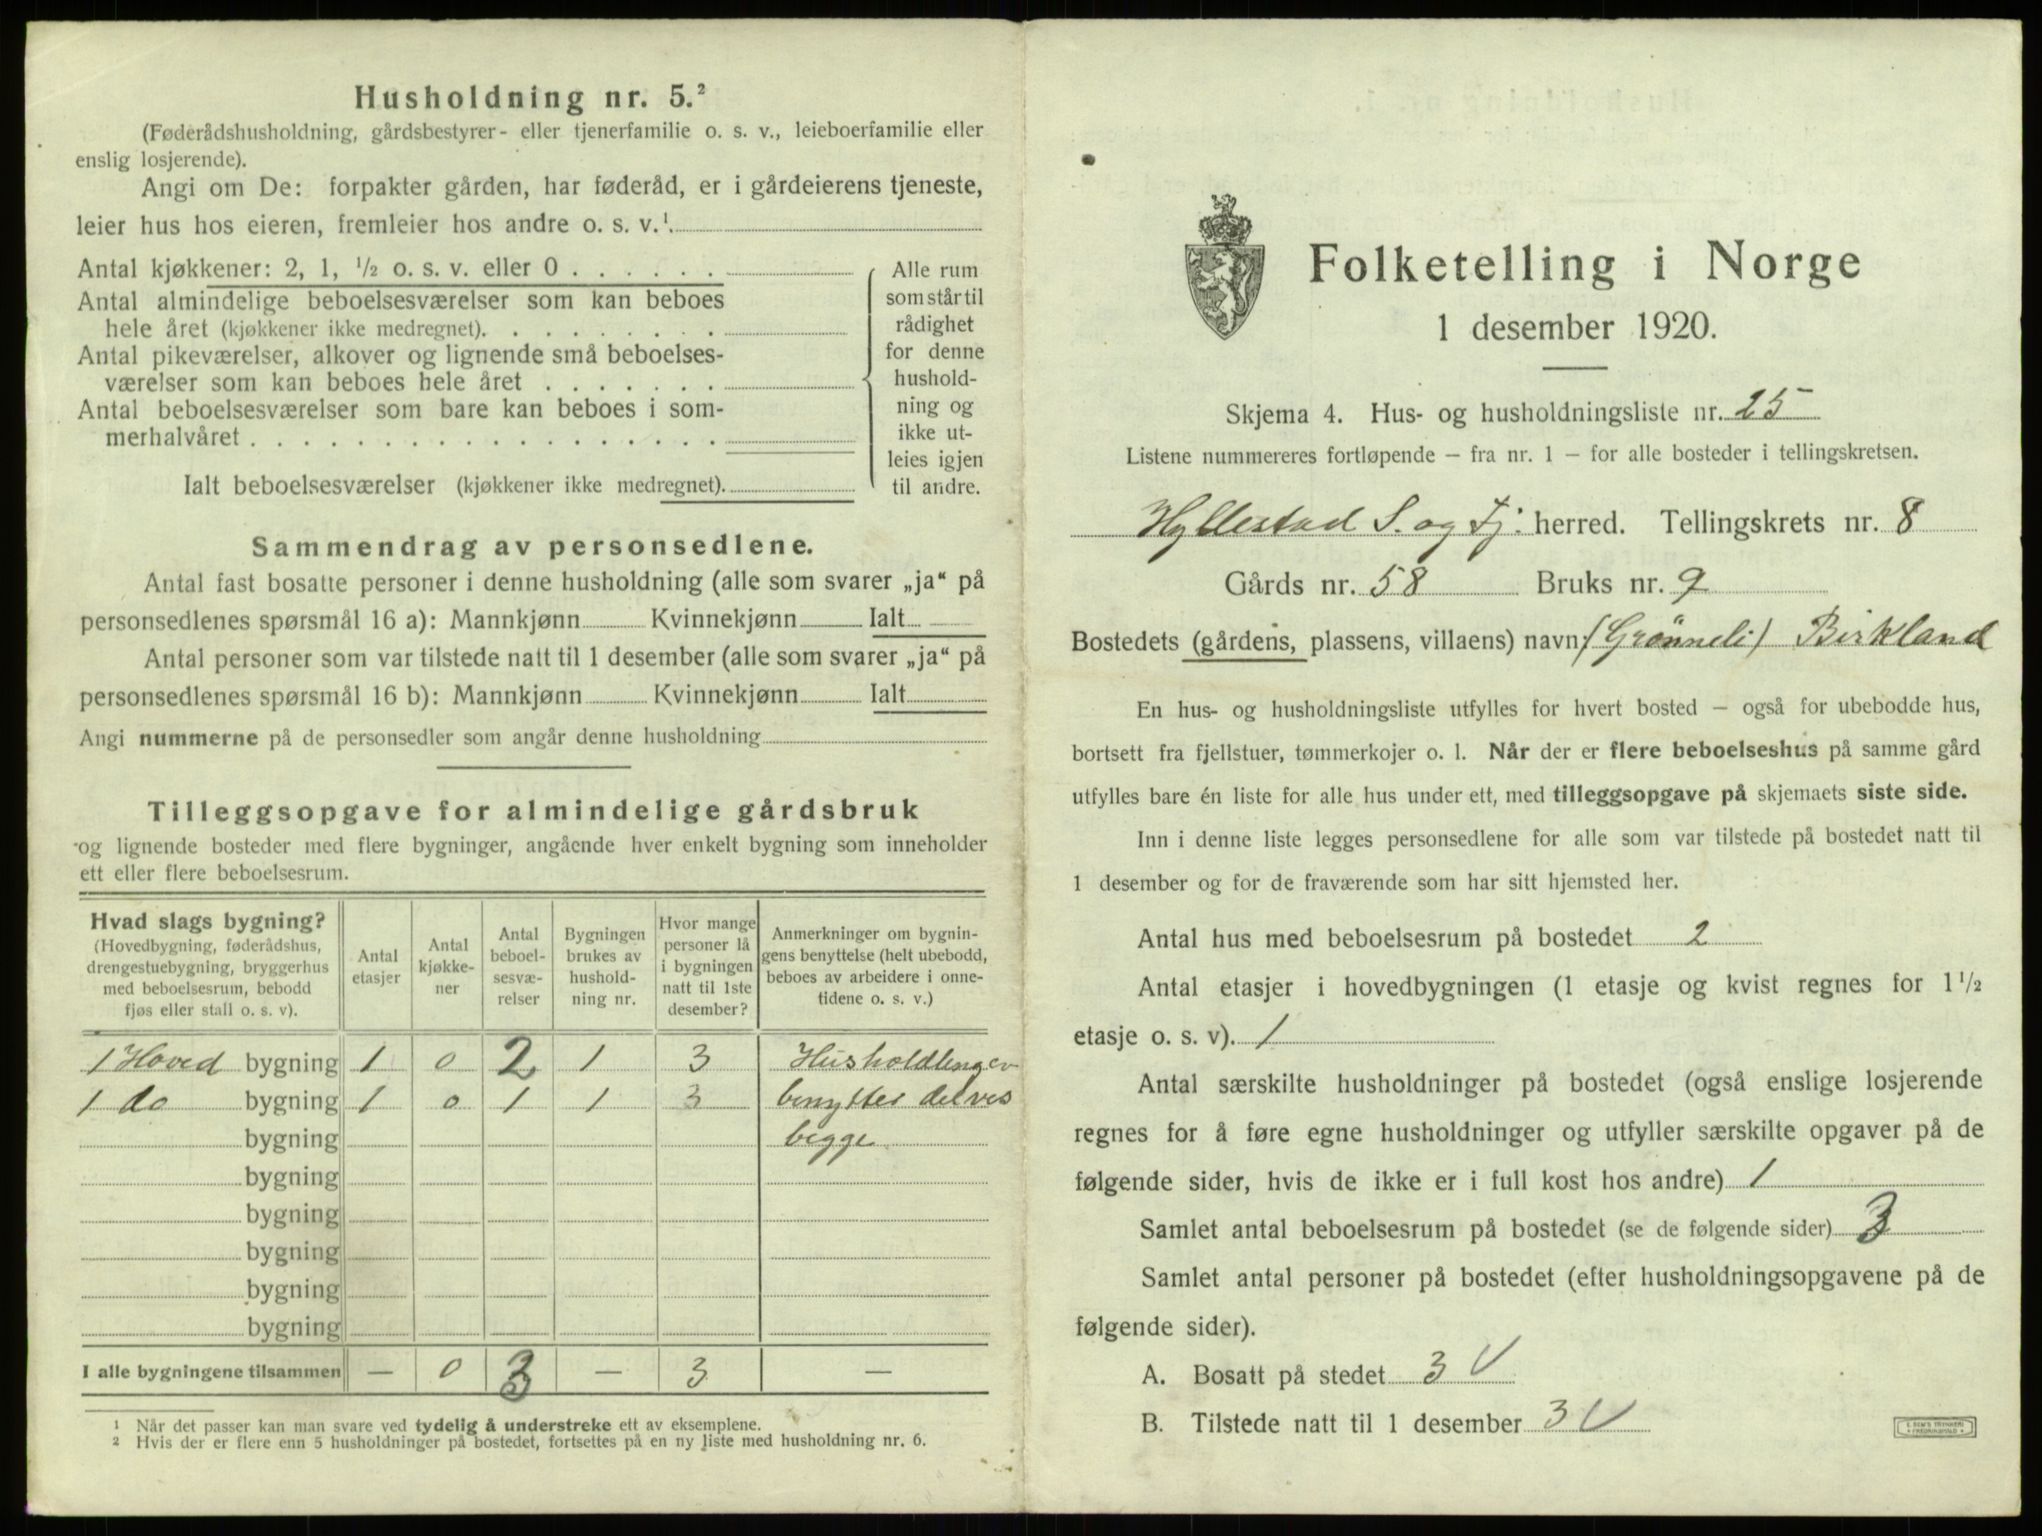 Husholdning nr. 5.²
(Føderådshusholdning, gårdsbestyrer- eller tjenerfamilie o. s. v., leieboerfamilie eller
enslig losjerende).
Angi om De: forpakter gården, har føderåd, er i gårdeierens tjeneste,
leier hus hos eieren, fremleier hos andre o. s. v.¹.
Antal kjøkkener: 2, 1, ½ o. s. v. eller 0 . . . . . .
Antal almindelige beboelsesværelser som kan beboes
hele året (kjøkkener ikke medregnet). . . . . . . . .
Antal pikeværelser, alkover og lignende små beboelses-
værelser som kan beboes hele året . . . . . . .
Antal beboelsesværelser som bare kan beboes i som-
merhalvåret . . . . . . . . . . . . . . . . . .
Ialt beboelsesværelser (kjøkkener ikke medregnet).
Alle rum
som står til
rådighet
for denne
hushold-
ning og
ikke ut-
leies igjen
til andre.
Sammendrag av personsedlene.
Antal fast bosatte personer i denne husholdning (alle som svarer „ja“ på
personsedlenes spørsmål 16 a): Mannkjønn Kvinnekjønn Ialt
Antal personer som var tilstede natt til 1 desember (alle som svarer „ja“ på
personsedlenes spørsmål 16 b): Mannkjønn Kvinnekjønn Ialt
Angi nummerne på de personsedler som angår denne husholdning
Tilleggsopgave for almindelige gårdsbruk
og lignende bosteder med flere bygninger, angående hver enkelt bygning som inneholder
ett eller flere beboelsesrum.
Hvad slags bygning?
(Hovedbygning, føderådshus,
drengestuebygning, bryggerhus
med beboelsesrum, bebodd
fjøs eller stall o. s. v).
Antal
etasjer
Antal
kjøkke-
ner
Antal
beboel-
sesvæ-
relser
Bygningen
brukes av
hushold-
ning nr.
Hvor mange
personer lå
i bygningen
natt til 1ste
desember?
Anmerkninger om bygnin-
gens benyttelse (helt ubebodd,
beboes av arbeidere i onne-
tidene o. s. v.)
1 Hoved bygning 1 0 2 1 3 Husholdlingen
1 do bygning 1 0 1 1 3 benytter delvis
bygning begge
bygning
bygning
bygning
bygning
bygning
I alle bygningene tilsammen — 0 3 — 3 —
¹ Når det passer kan man svare ved tydelig å understreke ett av eksemplene.
² Hvis der er flere enn 5 husholdninger på bostedet, fortsettes på en ny liste med husholdning nr. 6.
Folketelling i Norge
1 desember 1920.
Skjema 4. Hus- og husholdningsliste nr. 25
Listene nummereres fortløpende – fra nr. 1 – for alle bosteder i tellingskretsen.
Hyllestad S. og Fj. herred. Tellingskrets nr. 8
Gårds nr. 58 Bruks nr. 9
Bostedets (gårdens, plassens, villaens) navn (Grønneli) Birkland
En hus- og husholdningsliste utfylles for hvert bosted – også for ubebodde hus,
bortsett fra fjellstuer, tømmerkojer o. l. Når der er flere beboelseshus på samme gård
utfylles bare én liste for alle hus under ett, med tilleggsopgave på skjemaets siste side.
Inn i denne liste legges personsedlene for alle som var tilstede på bostedet natt til
1 desember og for de fraværende som har sitt hjemsted her.
Antal hus med beboelsesrum på bostedet 2
Antal etasjer i hovedbygningen (1 etasje og kvist regnes for 1½
etasje o. s. v). 1
Antal særskilte husholdninger på bostedet (også enslige losjerende
regnes for å føre egne husholdninger og utfyller særskilte opgaver på de
følgende sider, hvis de ikke er i full kost hos andre) 1
Samlet antal beboelsesrum på bostedet (se de følgende sider) 3
Samlet antal personer på bostedet (efter husholdningsopgavene på de
følgende sider).
A. Bosatt på stedet 3 V
B. Tilstede natt til 1 desember 3 V